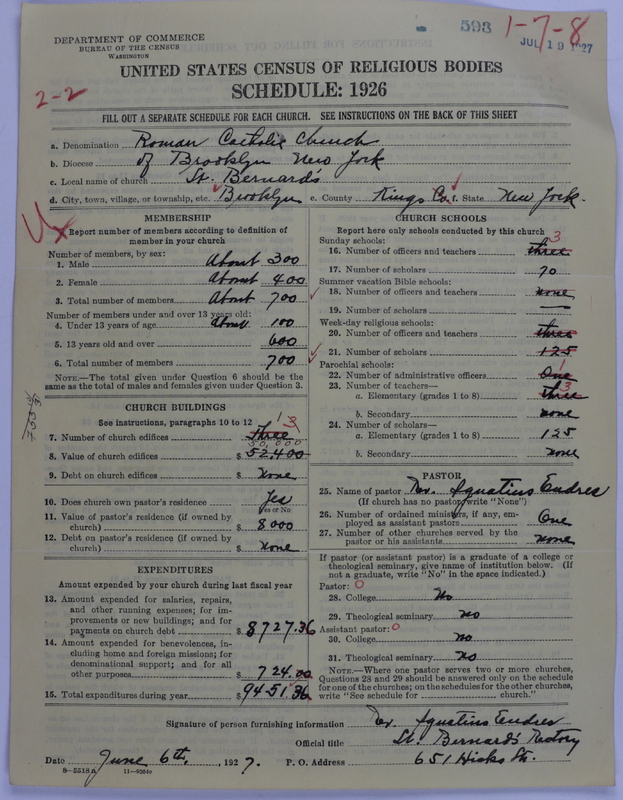 593 1-7-8
DEPARTMENT OF COMMERCE
BUREAU OF THE CENSUS
WASHINGTON
JUL 19 1927
UNITED STATES CENSUS OF RELIGIOUS BODIES
2-2
SCHEDULE: 1926
FILL OUT A SEPARATE SCHEDULE FOR EACH CHURCH. SEE INSTRUCTIONS ON THE BACK OF THIS SHEET
a. Denomination Roman Catholic Church
b. Diocese of Brooklyn New York
c. Local name of church St. Bernard's
d. City, town, village, or township, etc. Brooklyn e. County Kings Co. f. State New York.
MEMBERSHIP
Report number of members according to definition of
member in your church
Number of members, by sex:
1. Male About 300
2. Female About 400
3. Total number of members About 700
Number of members under and over 13 years old:
4. Under 13 years of age About 100
5. 13 years old and over 600
6. Total number of members 700
NOTE.—The total given under Question 6 should be
the same as the total of males and females given under Question 3.
CHURCH BUILDINGS
See instructions, paragraphs 10 to 12
1 3
7. Number of church edifices Three
50,000
8. Value of church edifices $ 52,400
9. Debt on church edifices $ None
10. Does church own pastor's residence Yes
Yes or No
11. Value of pastor's residence (if owned by
church) $ 8000
12. Debt on pastor's residence (if owned by
church) $ None
EXPENDITURES
Amount expended by your church during last fiscal year
13. Amount expended for salaries, repairs,
and other running expenses; for im-
provements or new buildings; and for
payments on church debt $ 8727.36
14. Amount expended for benevolences, in-
cluding home and foreign missions; for
denominational support; and for all
other purposes $ 724.00
15. Total expenditures during year $ 9451.36
CHURCH SCHOOLS
Report here only schools conducted by this church
Sunday schools: 3
16. Number of officers and teachers three
17. Number of scholars 70
Summer vacation Bible schools:
18. Number of officers and teachers none
19. Number of scholars —
Week-day religious schools:
20. Number of officers and teachers three
21. Number of scholars 125
Parochial schools: 1
22. Number of administrative officers One
23. Number of teachers— 3
a. Elementary (grades 1 to 8) three
b. Secondary none
24. Number of scholars—
a. Elementary (grades 1 to 8) 125
b. Secondary none
PASTOR
25. Name of pastor Rev. Ignatius Endres
(If church has no pastor, write "None")
26. Number of ordained ministers, if any, em-
ployed as assistant pastors One
27. Number of other churches served by the
pastor or his assistants none
If pastor (or assistant pastor) is a graduate of a college or
theological seminary, give name of institution below. (If
not a graduate, write "No" in the space indicated.)
Pastor: O
28. College No
29. Theological seminary no
Assistant pastor: O
30. College no
31. Theological seminary No
NOTE.—Where one pastor serves two or more churches,
Questions 28 and 29 should be answered only on the schedule
for one of the churches; on the schedules for the other churches,
write "See schedule for church."
Signature of person furnishing information Rev. Ignatius Endres
Official title St. Bernard's Rectory
Date June 6th, 1927. P. O. Address 651 Hicks St.
8-5518a 11-9364